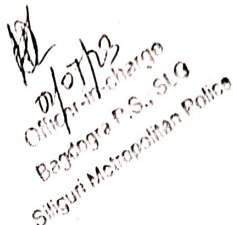 01/07/23
Officer-in-charge
Bagdogra P.S., SLG
Siliguri Metropolitan Police